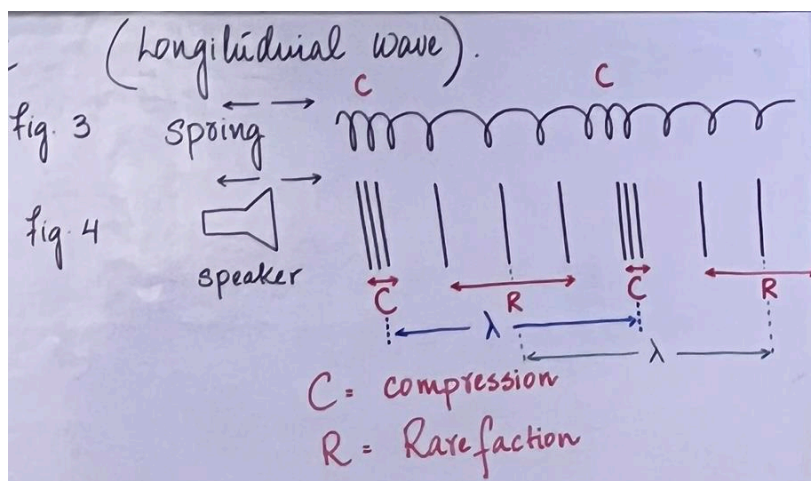 (Longitúduial wave).
C C
fig. 3 spring
fig. 4
speaker
C R C R
λ
λ
C = compression
R = Rarefaction